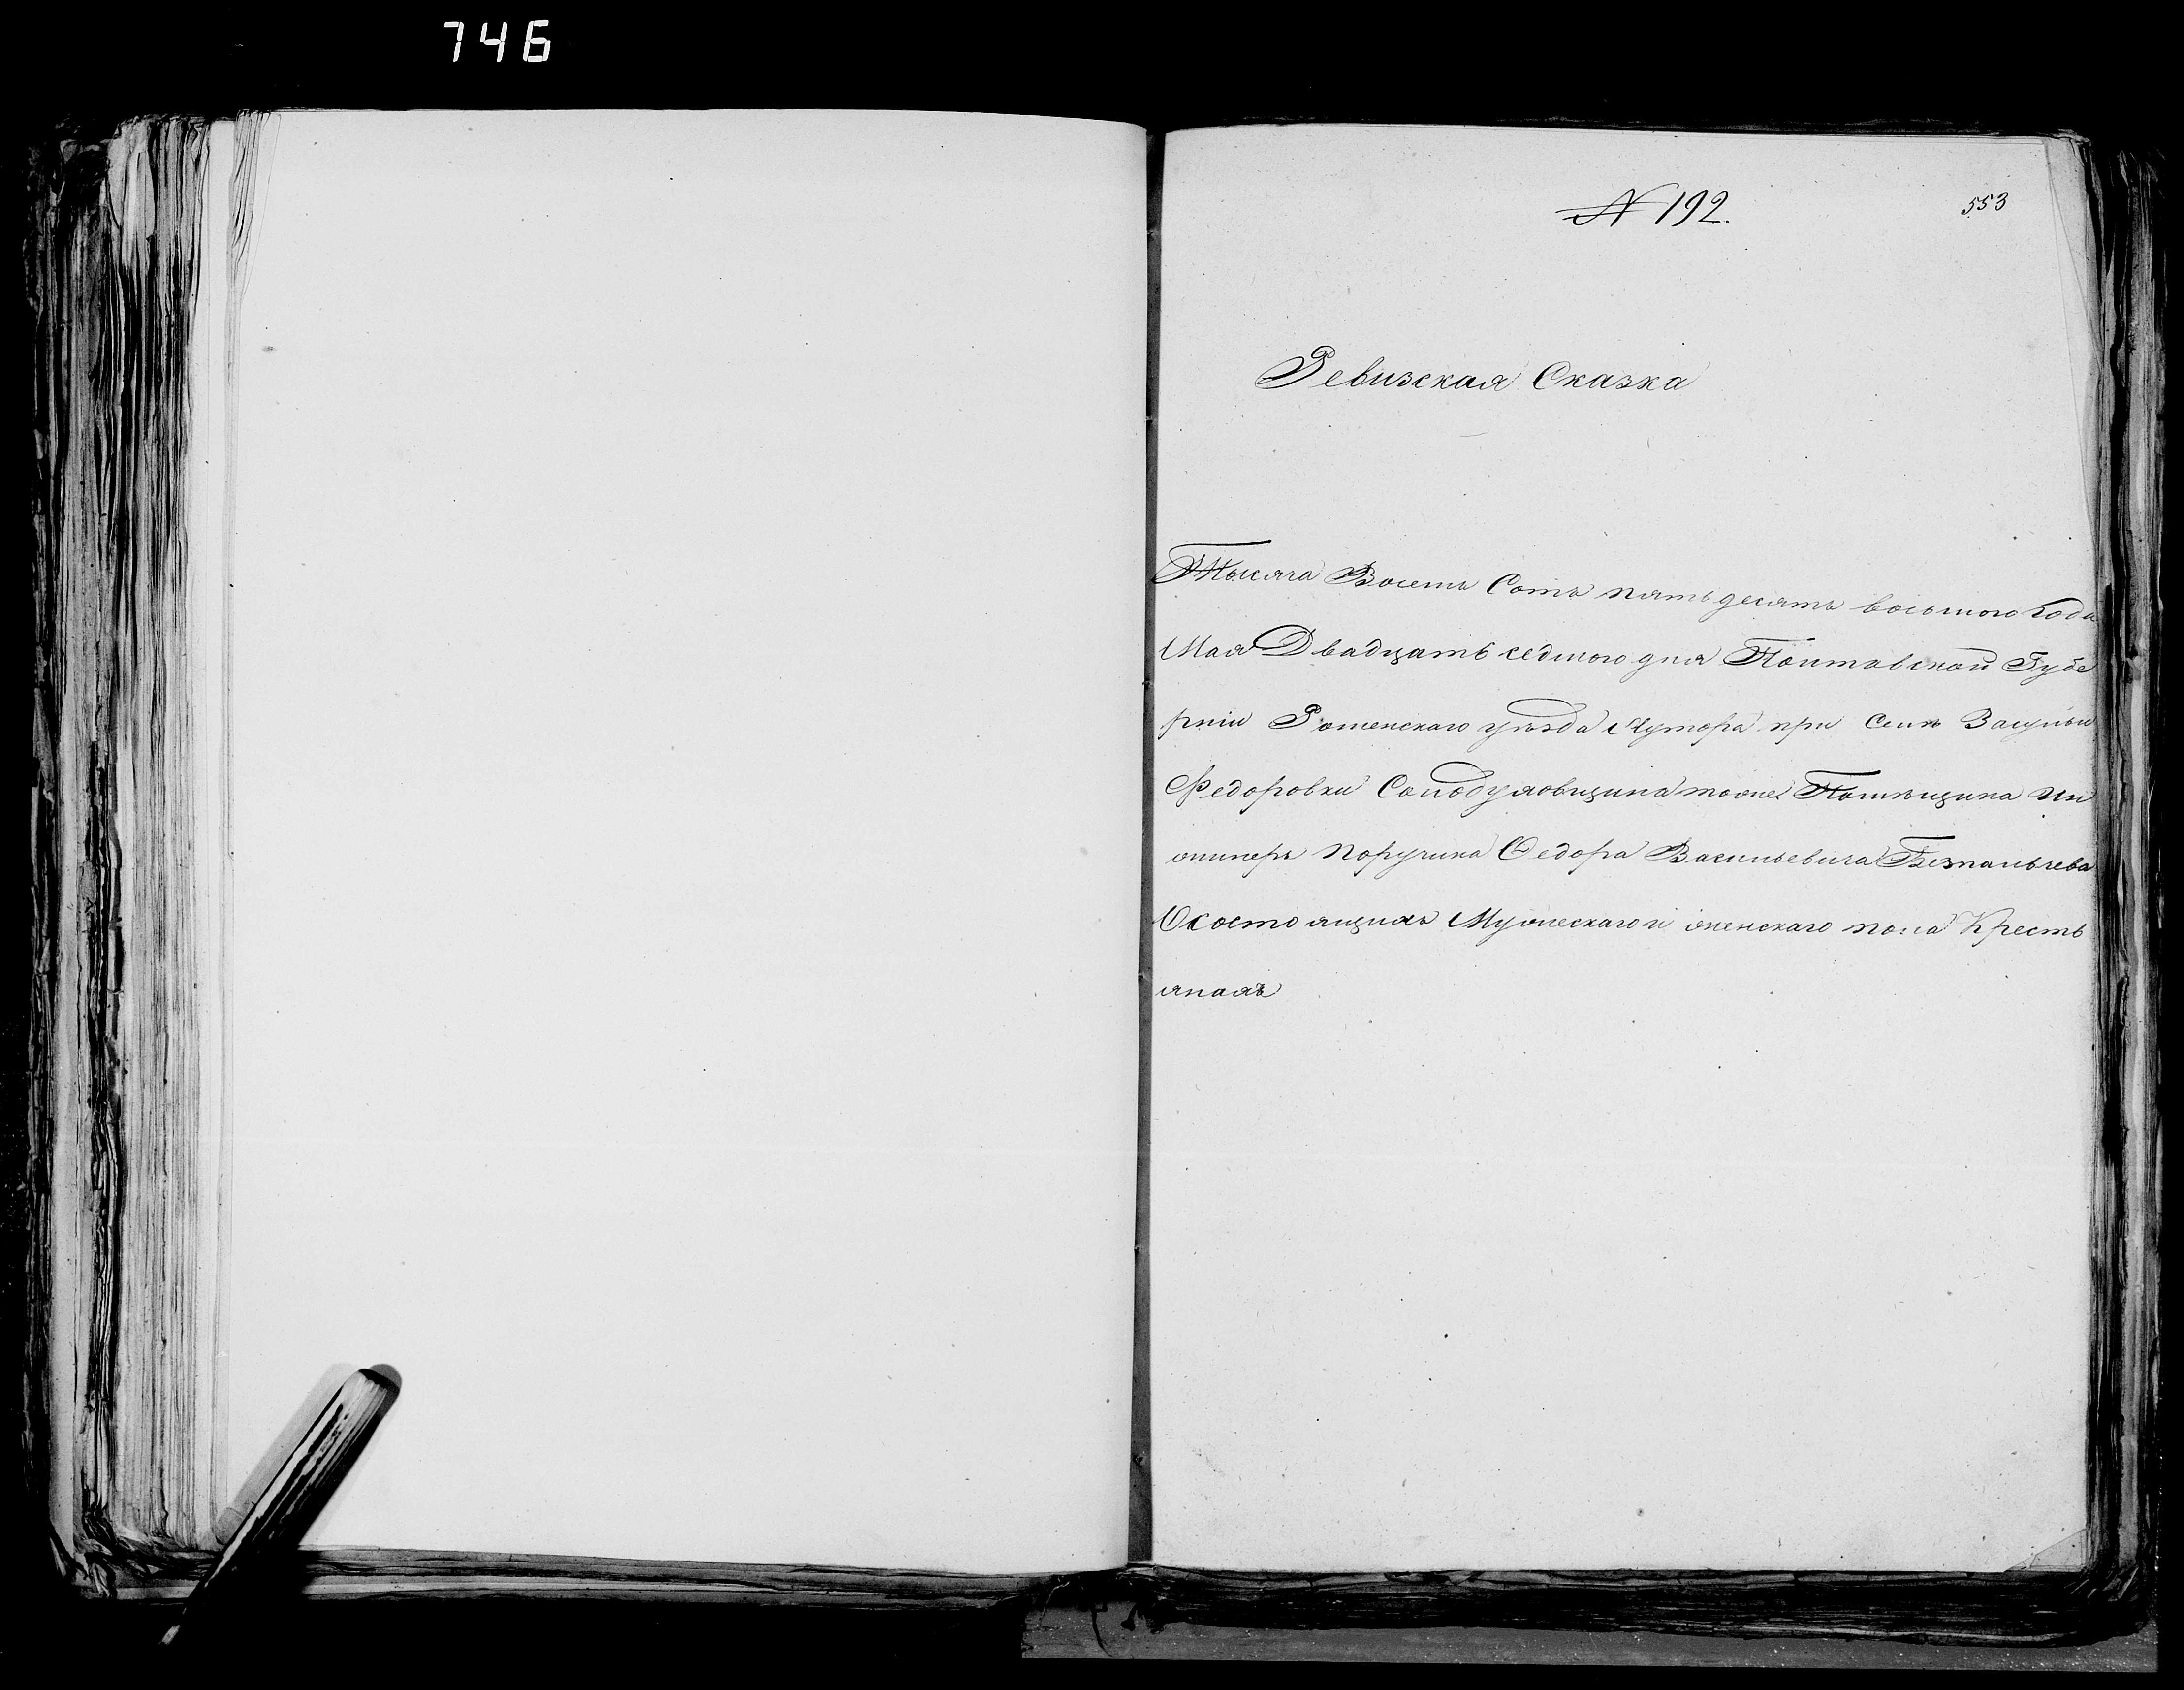 746
№ 192.
553
Ревизская Сказка
Тысяча Восемь Сотъ пятьдесятъ восьмого Года
Мая Двадцать седмого дня Полтавской Губе
рніи Роменскаго уѣзда Хутора при селѣ Засульи
Федоровки Солодуховщина тоже Помѣщика Ин
женеръ Поручика Ѳедора Васильевича Безпальчева
О состоящихъ Мужескаго и женскаго пола Кресть
янахъ